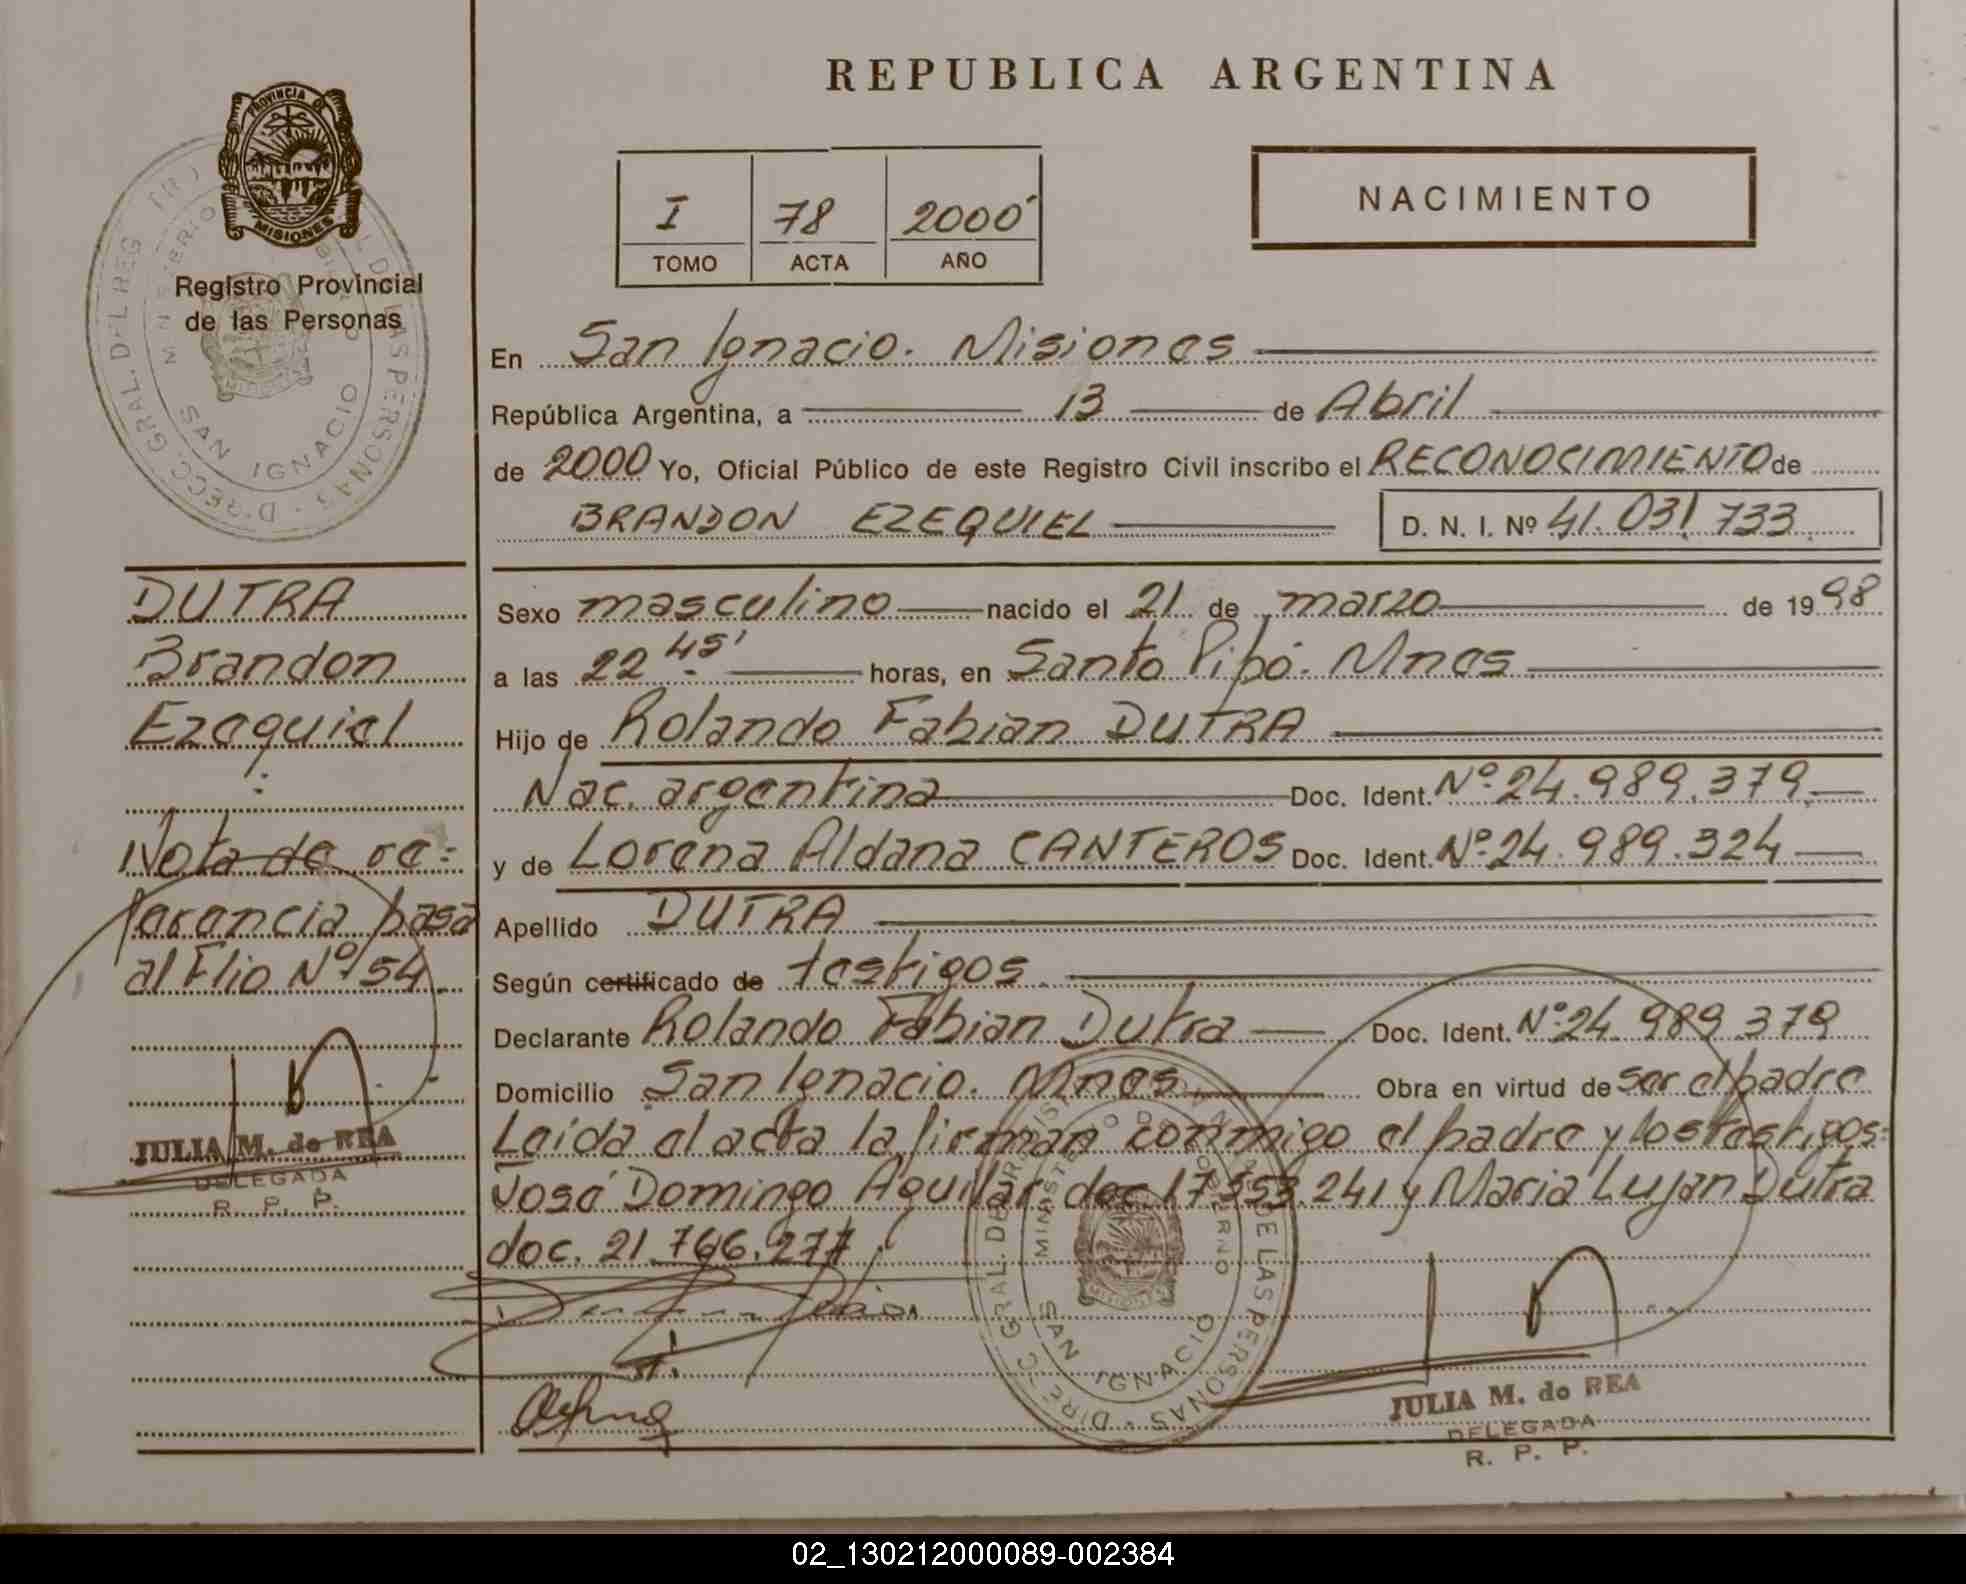 REPUBLICA ARGENTINA
PROVINCIA DE
MISIONES
Registro Provincial
de las Personas
I 78 2000
TOMO ACTA AÑO
NACIMIENTO
En San Ignacio. Misiones
República Argentina, a 13 de Abril
de 2000 Yo, Oficial Público de este Registro Civil inscribo el RECONOCIMIENTO de
BRANDON EZEQUIEL D. N. I. Nº 41.031.733
DUTRA
Brandon
Ezequiel
Nota de re=
ferencia pasa
al Flio Nº 54.
JULIA M. de REA
DELEGADA
R. P. P.
Sexo masculino nacido el 21 de marzo de 1998
a las 22 45' horas, en Santo Pipó. Mnes
Hijo de Rolando Fabian DUTRA
Nac. argentina Doc. Ident. Nº 24.989.379
y de Lorena Aldana CANTEROS Doc. Ident. Nº 24.989.324
Apellido DUTRA
Según certificado de testigos
Declarante Rolando Fabian Dutra Doc. Ident. Nº 24.989.379
Domicilio San Ignacio. Mnes Obra en virtud de ser el padre
Leída el acta la firman conmigo el padre y los testigos:
José Domingo Aguilar doc. 17.353.241 y Maria Lujan Dutra
doc. 21.766.277
DIRECC. GRAL. DEL REGISTRO DE LAS PERSONAS
MINISTERIO DE GOBIERNO
SAN IGNACIO
JULIA M. de REA
DELEGADA
R. P. P.
02_130212000089-002384